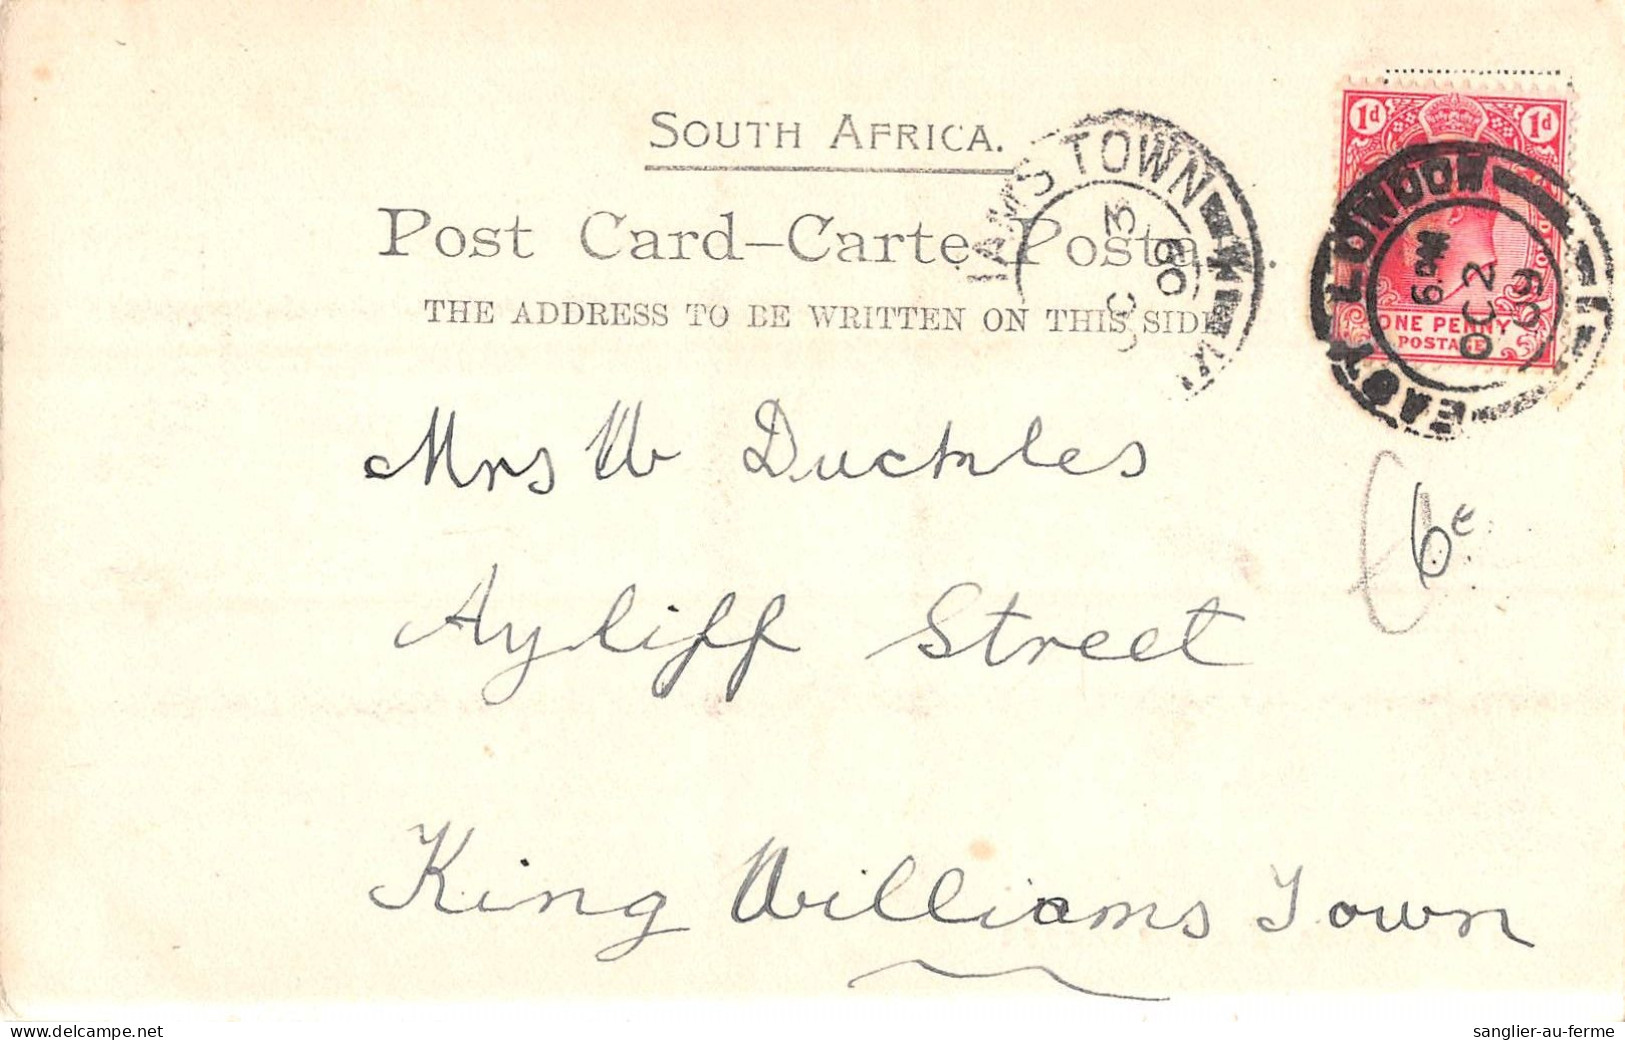 SOUTH AFRICA.
Post Card—Carte Postal
THE ADDRESS TO BE WRITTEN ON THIS SIDE
IAMS TOWN
OC 3
09
1d 1d
ONE PENNY
POSTAGE
EAST LONDON
6 PM
OC 2
09
Mrs W Duckles
6€
Ayliff Street
King Williams Town
www.delcampe.net
sanglier-au-ferme